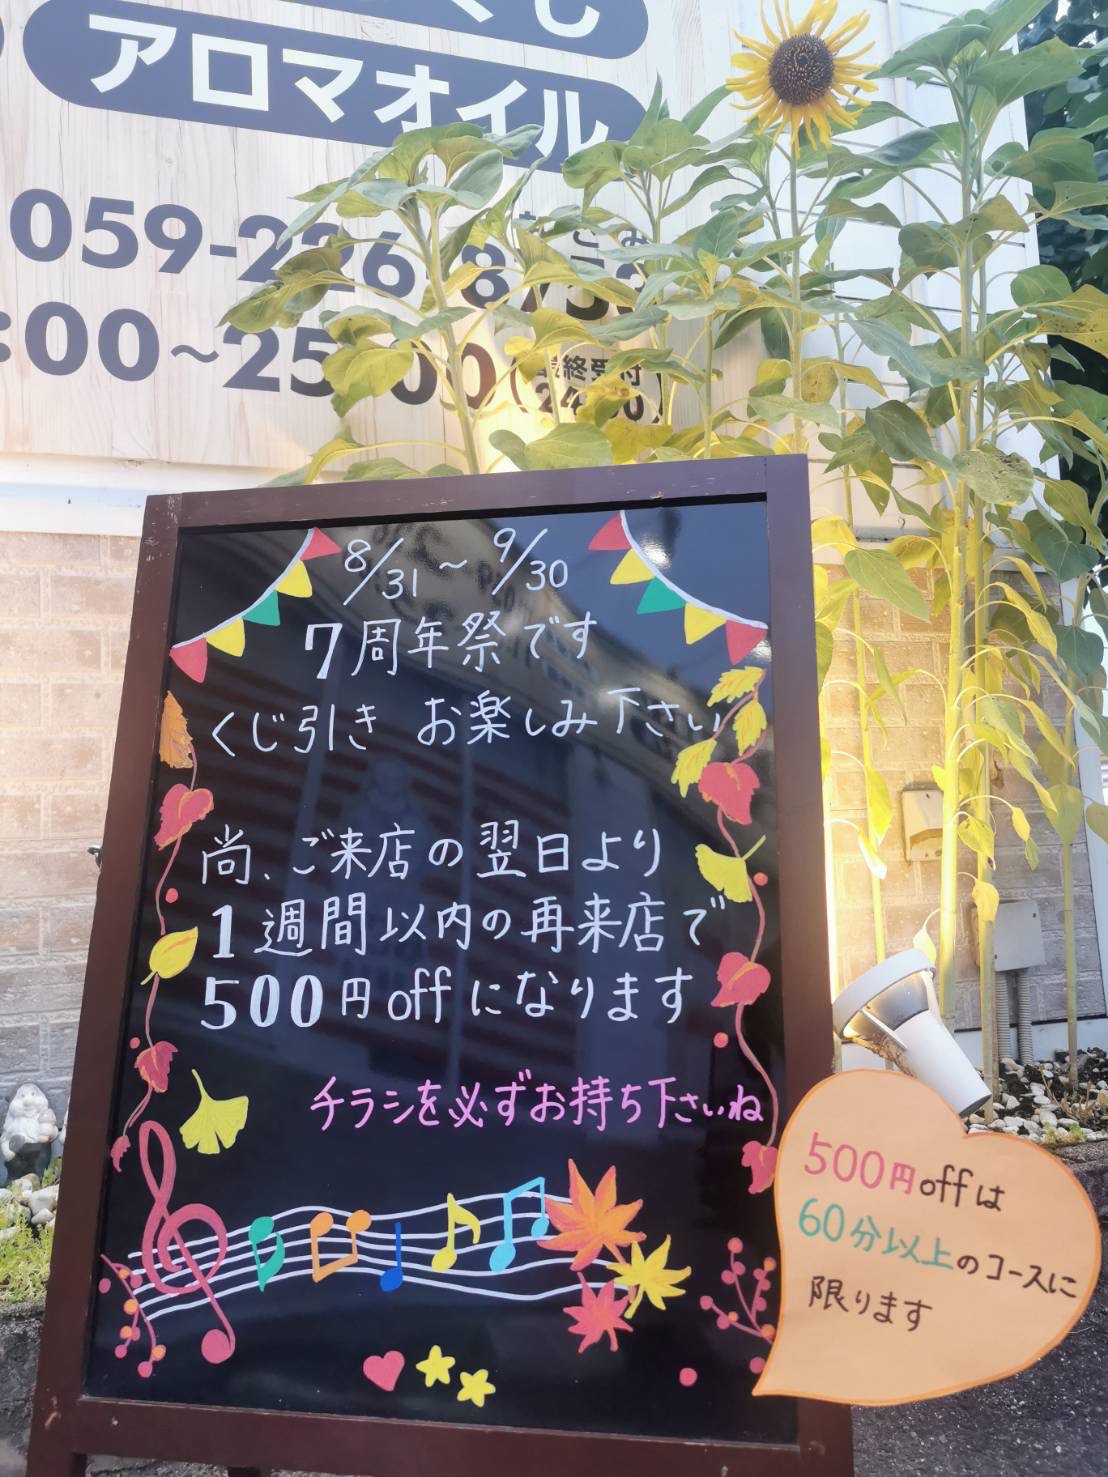 アロマオイル
8/31～9/30
7周年祭です
くじ引き お楽しみ下さい
尚、ご来店の翌日より
1週間以内の再来店で
500円offになります
チラシを必ずお持ち下さいね
500円offは
60分以上のコースに
限ります